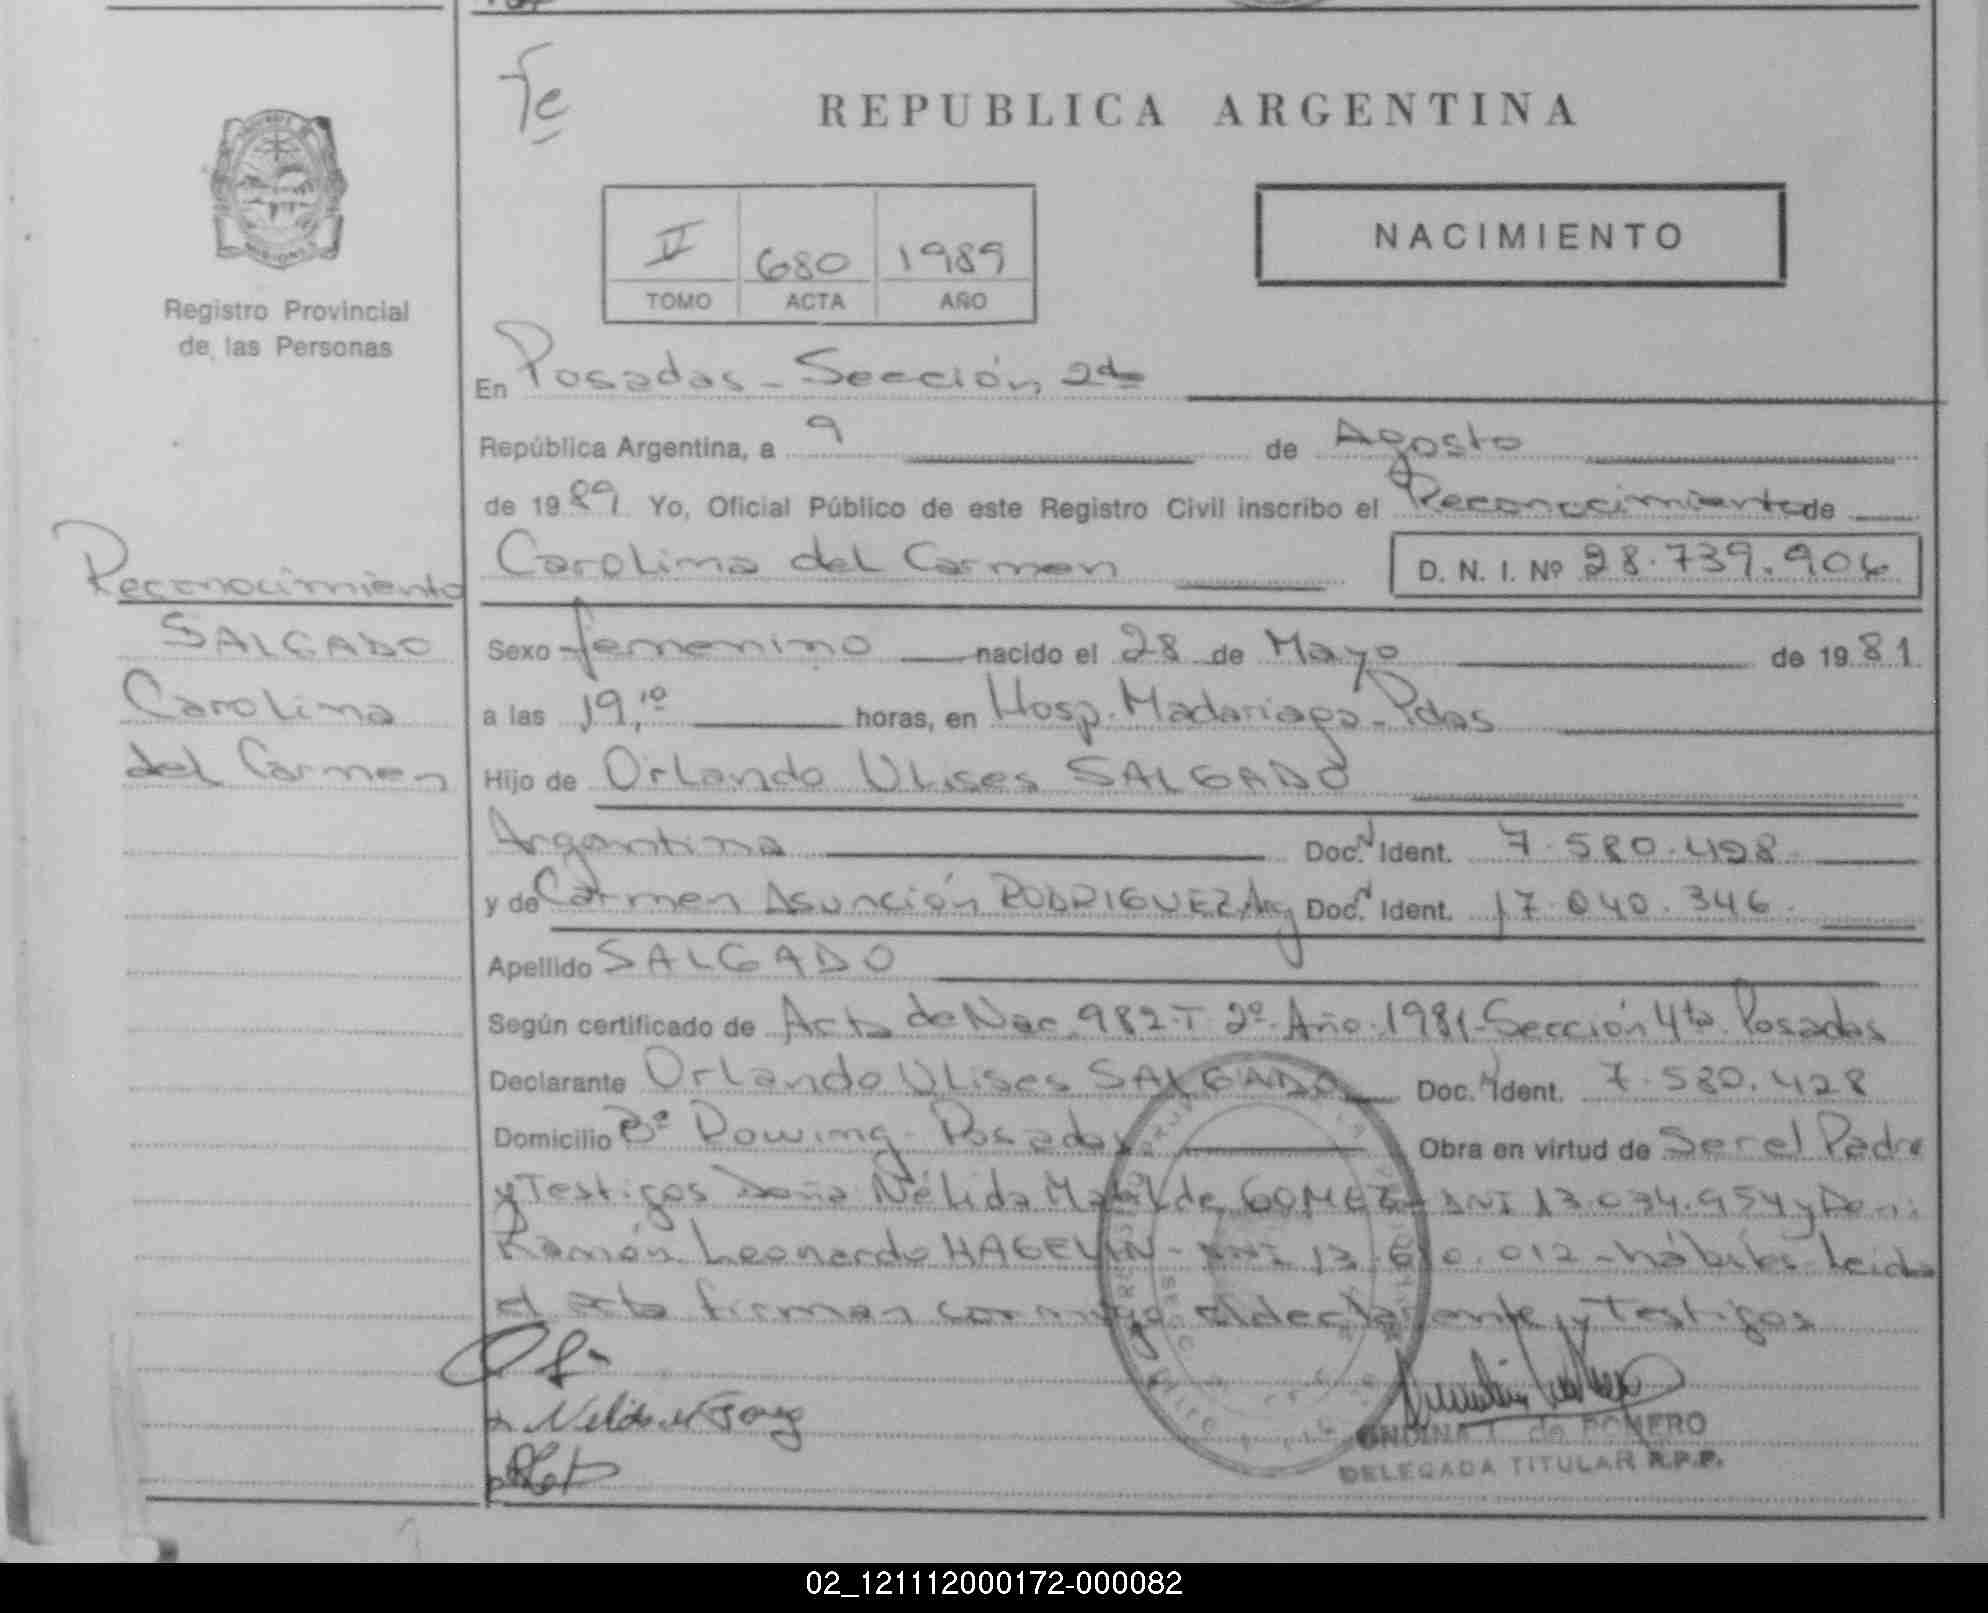 Fe
REPUBLICA ARGENTINA
NACIMIENTO
II 680 1989
TOMO ACTA AÑO
Registro Provincial
de las Personas
En Posadas - Sección 2da
República Argentina, a 9 de Agosto
de 1989 Yo, Oficial Público de este Registro Civil inscribo el Reconocimiento de
Carolina del Carmen D. N. I. Nº 28.739.906
Reconocimiento
SALGADO
Carolina
del Carmen
Sexo femenino nacido el 28 de Mayo de 1981
a las 19,10 horas, en Hosp. Madariaga - Pdas
Hijo de Orlando Ulises SALGADO
Argentina Doc. N Ident. 7.580.428
y de Carmen Asunción RODRIGUEZ Arg Doc. N Ident. 17.040.346.
Apellido SALGADO
Según certificado de Acta de Nac. 982 T 2º Año 1981 - Sección 4ta Posadas
Declarante Orlando Ulises SALGADO Doc. N Ident. 7.580.428
Domicilio Bº Dowing - Posadas Obra en virtud de Ser el Padre
y Testigos Doña Nélida Matilde GOMEZ - DNI 13.074.954 y Don:
Ramón Leonardo HAGELIN - DNI 13.610.012 - hábiles - Leida
el acta firman conmigo el declarante y Testigos
ONDINA T. de ROMERO
DELEGADA TITULAR R.P.P.
02_121112000172-000082